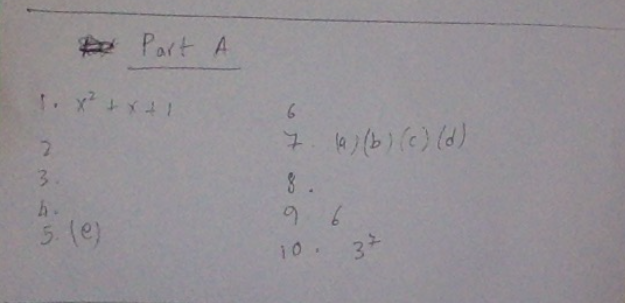 Part A
1. x² + x + 1
2
3.
4.
5. (e)
6
7. (a) (b) (c) (d)
8.
9 6
10. 3⁷